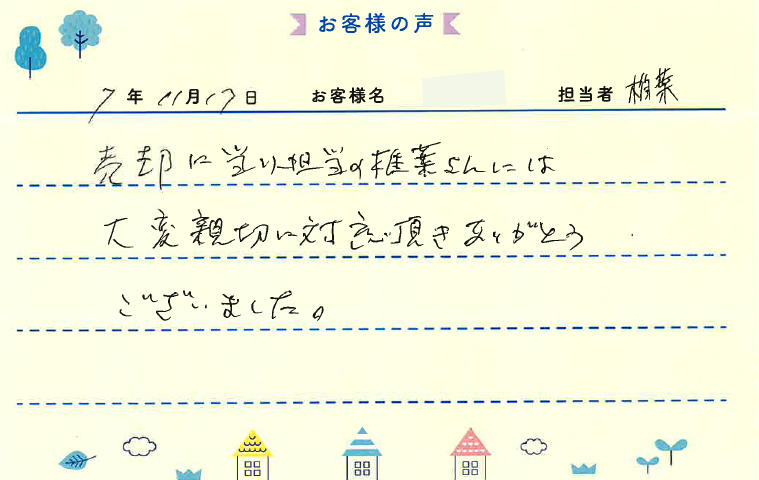 お客様の声
7年 11月17日 お客様名 担当者 椎葉
売却に当り担当の椎葉さんには
大変親切に対応頂きありがとう
ございました。